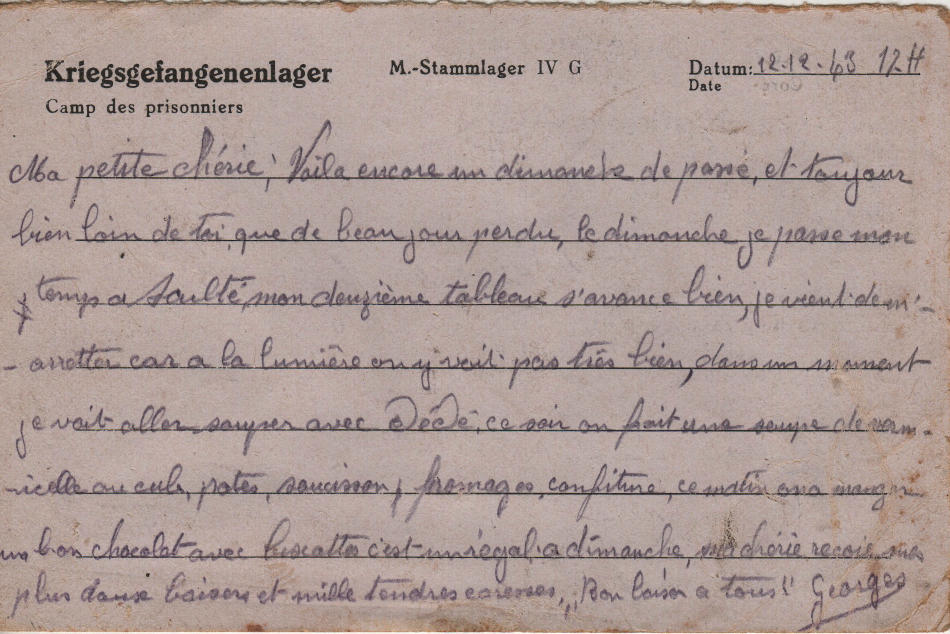 Kriegsgefangenenlager M.-Stammlager IV G Datum: 12.12.43 12H
Camp des prisonniers Date
Ma petite chérie, Voila encore un dimanche de passé, et toujour
bien loin de toi, que de beau jour perdu, le dimanche je passe mon
temps a mon deuzième tableau s'avance bien, je vient de m'-
-arretter car a la lumière on y voit pas très bien, dans un moment
je vait aller souper avec Dédé, ce soir on fait une soupe de verm-
-icelle au cub, pates, saucisson, fromages, confiture, ce matin on a manger
un bon chocolat avec biscottes c'est un régal, a dimanche, ma chérie recois mes
plus doux baisers et mille tendres caresses, "Bon baiser a tous" Georges